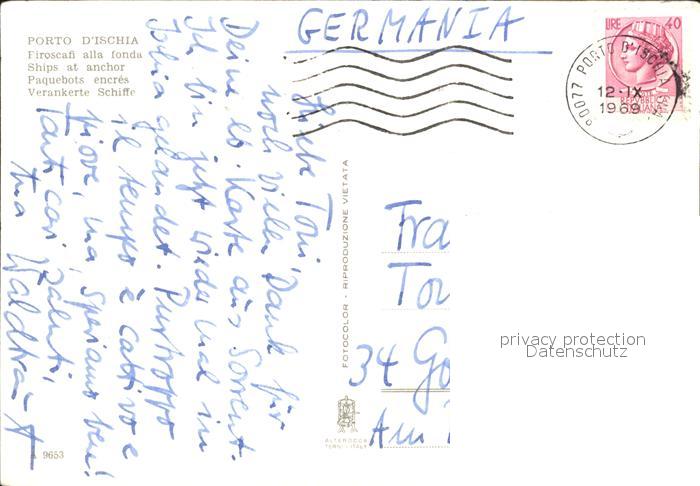 PORTO D'ISCHIA
Firoscafi alla fonda
Ships at anchor
Paquebots encrés
Verankerte Schiffe
GERMANIA
LIRE 40
80077 PORTO D'ISCHIA
12-IX
1969
Liebe Toni,
noch vielen Dank für
Deine lb. Karte aus Sorrent.
Ich bin jetzt wieder mal in
Ischia gelandet. Purtroppo
il tempo è cattivo e
piove, ma speriamo ben!
Tanti cari saluti,
tua Waldtraut
FOTOCOLOR - RIPRODUZIONE VIETATA
Fra
To
34 Gö
Am
privacy protection
Datenschutz
ALTEROCCA
TERNI - ITALY
A 9653